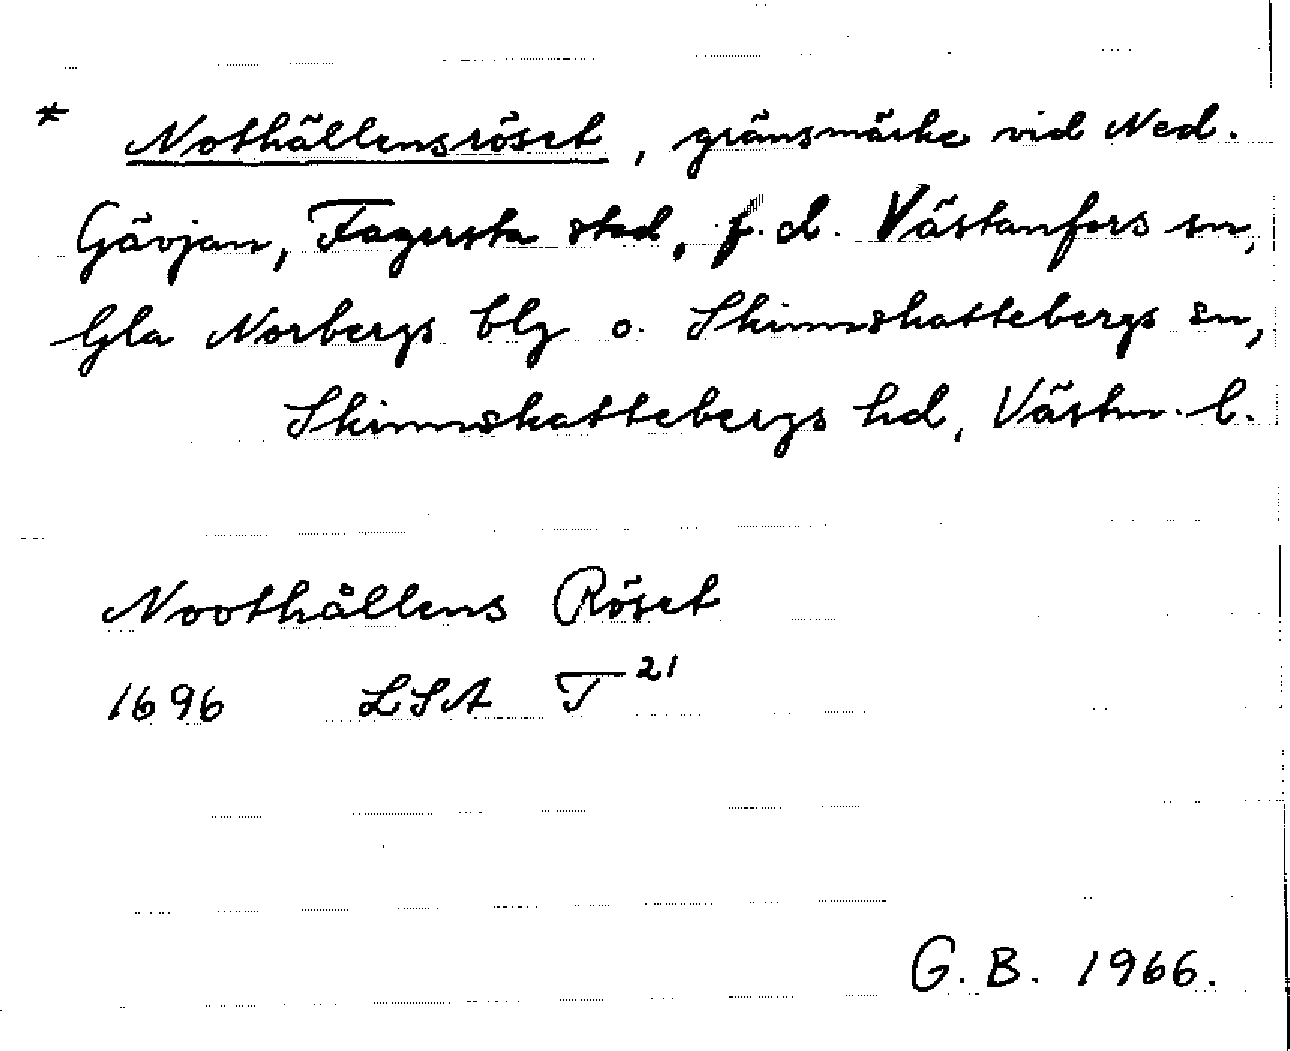 * Nothällensröset, gränsmärke vid Ned.
Gävjan, Fagersta stad, f.d. Västanfors sn,
Gla Norbergs blg o. Skinnskattebergs sn,
Skinnskattebergs hd, Västm. l.
Noothållens Röset
1696 LSA T 21
G. B. 1966.